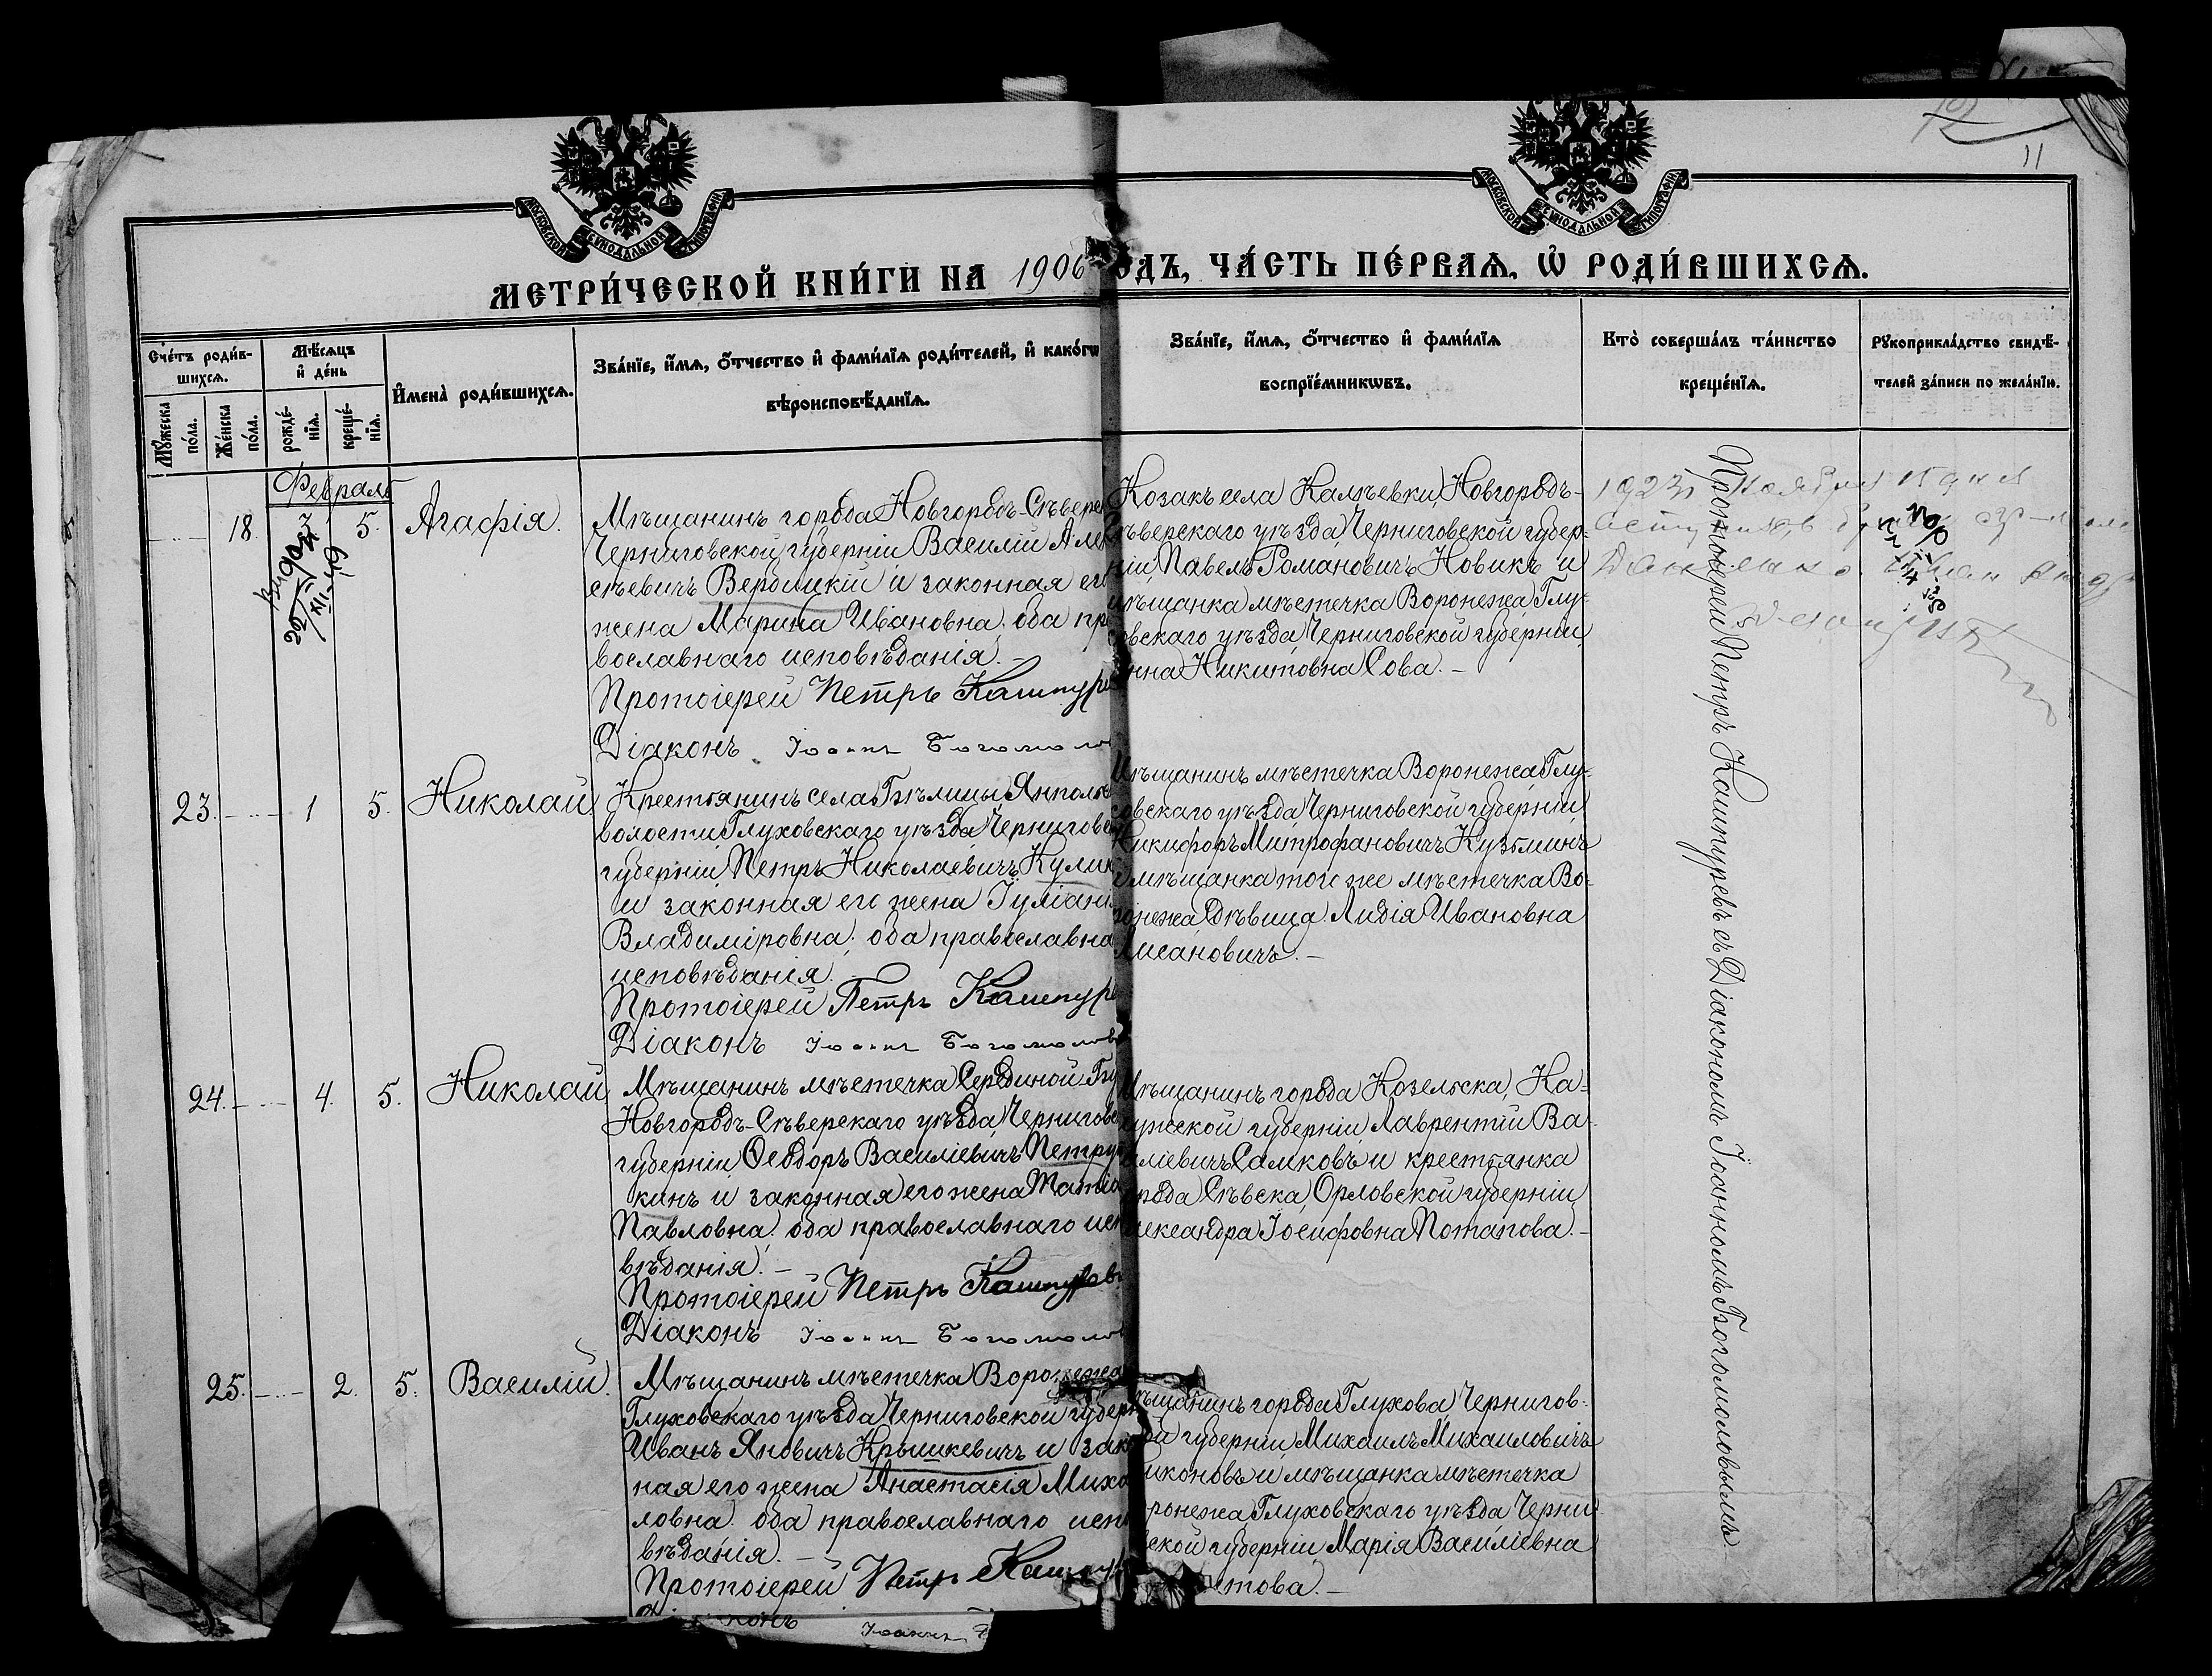 11
МОСКОВСКОЙ СѴНОДАЛЬНОЙ ТИПОГРАФІИ
МОСКОВСКОЙ СѴНОДАЛЬНОЙ ТИПОГРАФІИ
МЕТРИ́ЧЕСКОЙ КНИ́ГИ НА 1906 ОДЪ, ЧА́СТЬ ПЕ́РВАѦ, Ѡ҆ РОДИ́ВШИХСѦ.
Сче́тъ роди́в-
шихсѧ.
Мꙋ́жеска
по́ла.
Же́нска
по́ла.
Мѣ́сѧцъ
и҆ де́нь
рожде́-
нїѧ.
креще́-
нїѧ.
И҆мена̀ роди́вшихсѧ.
Зва́нїе, и҆́мѧ, ѻ҆́тчество и҆ фами́лїѧ роди́телей, и҆ како́гѡ
вѣроисповѣ́данїѧ.
Зва́нїе, и҆́мѧ, ѻ҆́тчество и҆ фами́лїѧ
воспрїе́мникѡвъ.
Кто̀ соверша́лъ та́инство
креще́нїѧ.
Рꙋкоприкла́дство свидѣ́-
телей за́писи по жела́нїю.
Февраль
18. 3 5. Агафія.
Мѣщанинъ города Новгородъ-Сѣверс
Черниговской губерніи Василій Але
сѣевичъ Вербицкій и законная ег
жена Марина Ивановна, оба пр
вославнаго исповѣданія.-
Протоіерей Петръ Кашпур
Діаконъ Іоаннъ Богомоло
Козакъ села Калѣевки, Новгородъ-
ѣверскаго уѣзда, Черниговской губер-
ніи, Павелъ Романовичъ Новикъ и
мѣщанка мѣстечка Воронежа, Глу-
овскаго уѣзда, Черниговской губерніи,
нна Никитовна Сова.-
1923 ноября 15 дня
23. 1 5. Николай.
Крестьянинъ села Бѣлицы, Ямпольс
волости, Глуховскаго уѣзда, Черниговс
губерніи, Петръ Николаевичъ Кулик
и законная его жена Іуліані
Владиміровна, оба православна
исповѣданія.
Протоіерей Петръ Кашпур
Діаконъ Іоаннъ Богомолов
Мѣщанинъ мѣстечка Воронежа, Глу-
овскаго уѣзда, Черниговской губерніи,
Никифоръ Митрофановичъ Кузьминъ
и мѣщанка того же мѣстечка Во-
ронежа, дѣвица Лидія Ивановна
Лисановичъ.-
24. 4. 5. Николай
Мѣщанинъ мѣстечка Серединой-Бу
Новгородъ-Сѣверскаго уѣзда, Черниговс
губерніи, Ѳеодоръ Василіевичъ Петру
кинъ и законная его жена Татіа
Павловна, оба православнаго исп
вѣданія.-
Протоіерей Петръ Кашпуровъ
Діаконъ Іоаннъ Богомолов
Мѣщанинъ города Козельска, Ка-
ужской губерніи, Лаврентій Ва-
иліевичъ Самковъ и крестьянка
рода Сѣвска, Орловской губерніи,
лександра Іосифовна Потапова.-
25. 2. 5. Василій.
Мѣщанинъ мѣстечка Воронежа
Глуховскаго уѣзда, Черниговской губерн
Иванъ Яновичъ Крышкевичъ и зако
ная его жена Анастасія Миха
ловна, оба православнаго исп
вѣданія.-
Протоіерей Петръ Кашпу
Іоаннъ
ѣщанинъ города Глухова, Чернигов-
ой губерніи, Михаилъ Михаиловичъ
иконовъ и мѣщанка мѣстечка
ронежа, Глуховскаго уѣзда, Черни
вской губерніи, Марія Василіевна
етова.-
Протоіерей Петръ Кашпуревъ съ Діакономъ Іоанномъ Богомоловымъ